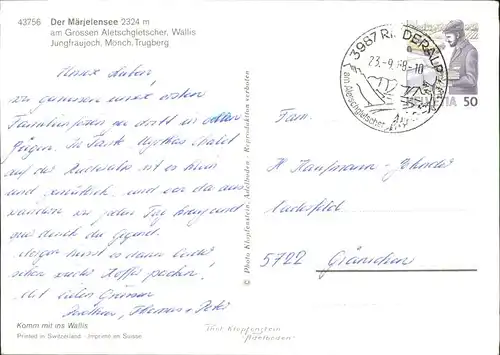 43756 Der Märjelensee 2324 m
am Grossen Aletschgletscher, Wallis
Jungfraujoch, Mönch, Trugberg
3987 RIEDERALP
23.-9.88-10
am Aletschgletscher
HELVETIA 50
wir geniessen unsere ersten
Familienferien zu dritt in
auf der Riederalp ist es klein
und gemütlich, und von da aus
wandern wir jeden Tag kreuz und
quer durch die Gegend.
Morgen heisst es dann leider
schon wieder Koffer packen!
Mit vielen Grüssen
Thomas + Peter
Fam.
H Hauptmann-Zehnder
5722 Gränichen
© Photo Klopfenstein, Adelboden - Reproduktion verboten
Komm mit ins Wallis
Printed in Switzerland - Imprimé en Suisse
Photo Klopfenstein
Adelboden